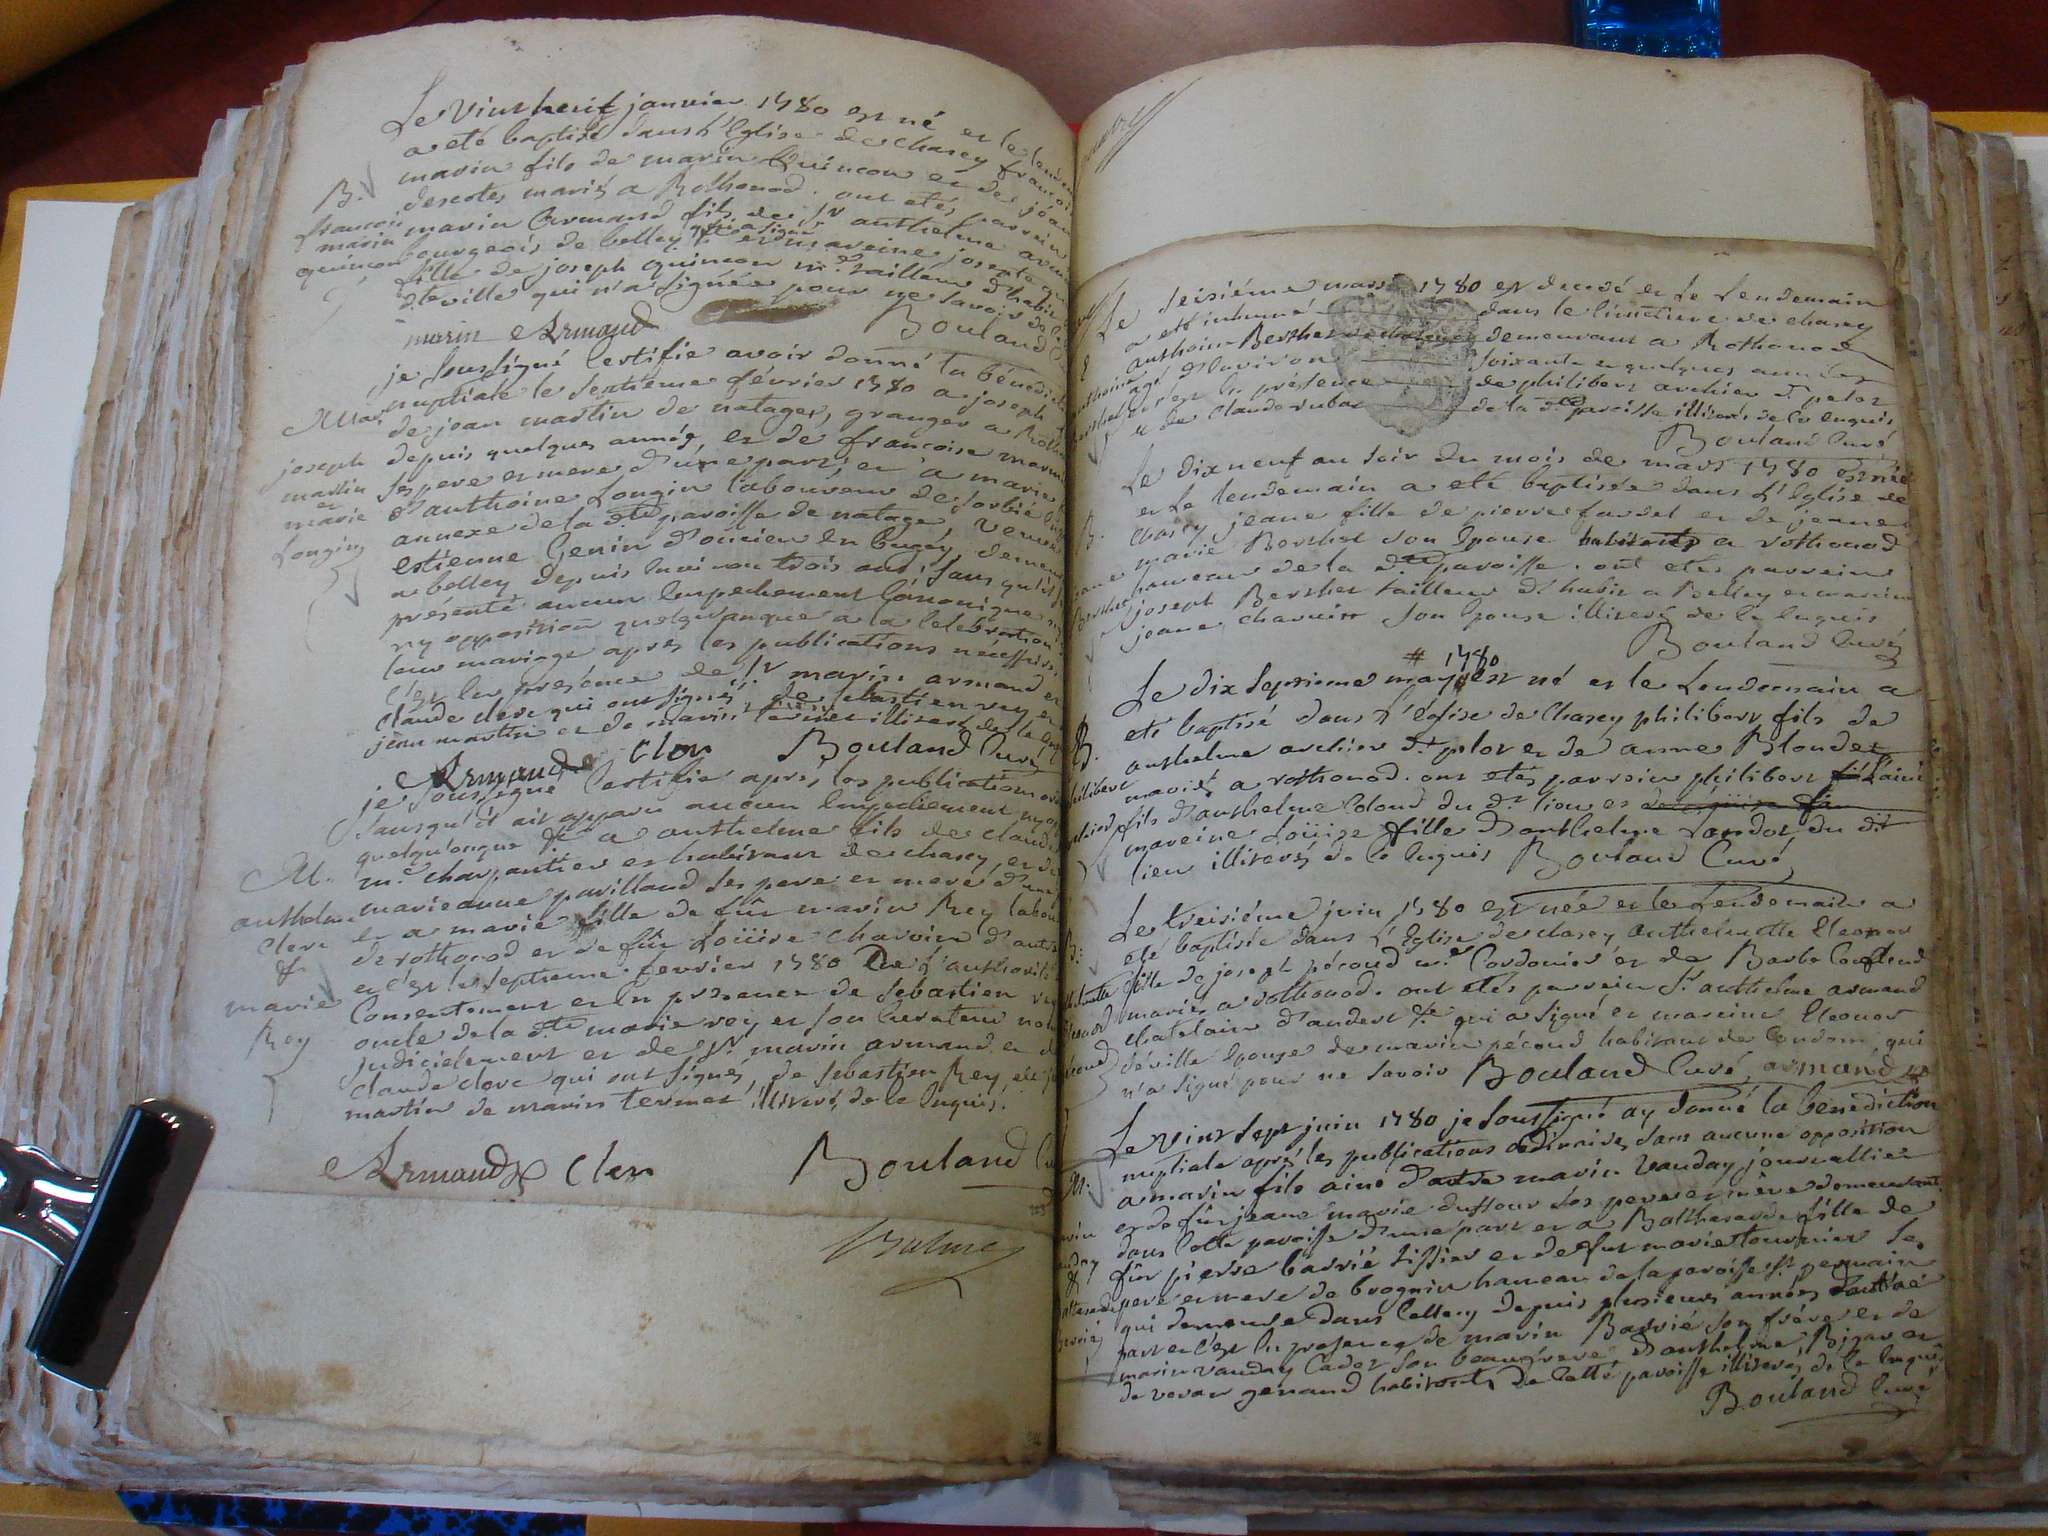 Le vint huit janvier 1780 est né et le lendem
a eté baptisé dans l'Eglise de chasey françois
marin fils de marin Quinçon et de jéan
descotes mariés a Rothonod. ont etés parrein
B.
françois
marin
quinçon
marin Armand fils de Sr anthelme arm
bourgeois de belley qui a signé et mareine josepte qu
fille de joseph quinçon me tailleur d'habi
dte ville qui n'a signée pour ne savoir de
marin Armand Bouland
je soussigné Certifie avoir donné la bénedi
nuptiale le septième février 1780 a joseph
Mar
joseph
martin
et
marie
Longin
de jean martin de natages, granger a Roth
depuis quelques année, et de françoise marin
ses pere et mere d'une part, et a marie
d'anthoine Longin laboureur de sorbié
annexe de la dte paroisse de natage, veuve
estienne Genin d'oncieu en bugey, demeu
a belley depuis environ trois ans, sans qu'il
présenté aucun Empechement Canonique
ny opposition quelqu'onque a la celebration
leur mariage après les publications nécessair
C'est en presence de Sr marin armand et
claude clerc qui ont signés, de sebastien rey et
jean martin et de marin termet illiteré de le
Armand Clerc Bouland Curé
je soussigné Certifie après les publications
sans qu'il ait apparu aucun Empechement ny
quelqu'onque a anthelme fils de claude
M.
anthelme
Clerc
&
marie
Rey
me charpentier et habitant de chasey, et de
marieanne pavilland ses pere et mere d'une
et a marie fille de fûr marin Rey labou
de rothonod et de fûe Loüise charvin d'autre
et c'est le septieme fevrier 1780 De l'authorité
Consentement et en presence de sebastien rey
oncle de la dte marie rey et son Curateur
judicielement et de Sr marin armand et
claude clerc qui ont signés, de sebastien Rey, de
martin de marin termet, illiteré de le Enquis.
Armand Clerc Bouland
Le seisième mars 1780 est decedé et le lendemain
a esté inhumé dans le cimetiere de chasey
anthoine Berthet demeurant a Rothonod
agé d'environ soixante et quelques années
et c'est en présence de philibert archier dt pelot
et de Claude dubat de la dte paroisse illiterés de ce Enquis
Bouland Curé
Le dix neuf au soir du mois de mars 1780 est née
et le lendemain a eté baptisée dans l'Eglise de
B. Chasey jeane fille de pierre fardet et de jeanne
marie Berthet son Epouse habitants a rothonod
hameau de la dte paroisse. ont etés parrein
joseph Berthet tailleur d'habit a Belley et mareine
jeane charvin son Epouse illiterés de le Enquis
Bouland Curé
# 1780
Le dix septieme may est né et le Lendemain a
eté baptisé dans l'Église de Chasey philibert fils de
B. anthelme archier dt pelot et de anne Blondet
mariés a rothonod. ont etés parrein philibert l'ainé
fils d'anthelme Colond du dt lieu et
mareine Loüise fille d'anthelme Landot, du dit
lieu illiterés de le Enquis Bouland Curé
Le treisiéme juin 1780 est née et le Lendemain a
eté baptisée dans l'Eglise de chasey Anthelmette Eleonor
fille de joseph pécoud me Cordonier et de Barbe
mariés a rothonod. ont etés parrein Sr anthelme armand
Chatelain d'andert &c qui a signé et mareine Eleonor
déville Epouse de marin pécoud habitant de Condom, qui
n'a signé pour ne savoir Bouland Curé, armand
Le vint sept juin 1780 je soussigné ay donné la benediction
nuptiale après les publications ordinaires, sans aucune opposition
M. a marin fils ainé d'autre marin Vauday journallier
et de fûe jeane marie duffour ses pere et mére demeurant
dans cette paroisse d'une part et a Balthesarde fille de
fûr pierre barrié tissier et de fue marie tournier ses
pere et mere de brognin hameau de la paroisse St germain
qui demeure dans Cellecy depuis plusieurs années d'autre
part et c'est en presence de marin Barrié son frère et de
marin vauday Cadet son beaufrere d'anthelme Bigar et
de genand habitants de Cette paroisse illiterés de le Enquis
Bouland Curé